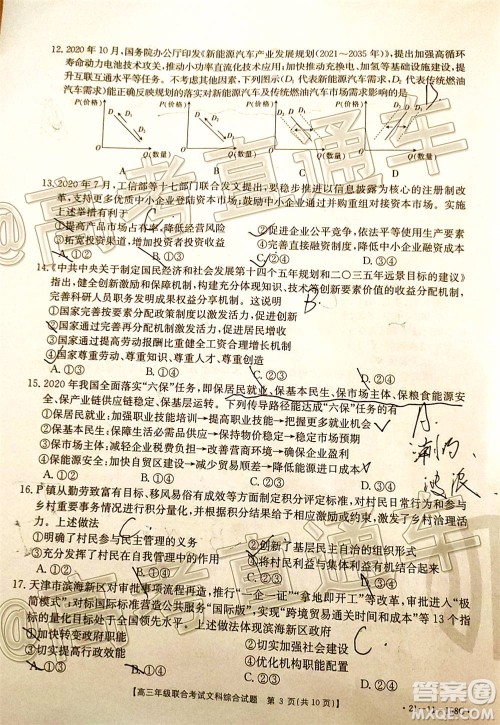 12. 2020年10月，国务院办公厅印发《新能源汽车产业发展规划（2021～2035年）》，提出加强高循环
寿命动力电池技术攻关，推动小功率直流化技术应用；加快推动充换电、加氢等基础设施建设，提
升互联互通水平等任务。不考虑其他因素，下列图示（D₁代表新能源汽车需求，D₂代表传统燃油
汽车需求）能正确反映规划的落实对新能源汽车及传统燃油汽车市场需求影响的是
P(价格) P(价格) P(价格) P(价格)
Q(数量) Q(数量) Q(数量) Q(数量)
A B C D
13. 2020年7月，工信部等十七部门联合发文提出：要稳步推进以信息披露为核心的注册制改
革，支持更多优质中小企业登陆资本市场；鼓励中小企业通过并购重组对接资本市场。实施
上述举措有利于
①提高产品市场占有率，降低经营风险 ②促进企业公平竞争，依法平等使用资源
③拓宽投资渠道，增加居民资本收入 ④便利企业直接融资，降低中小企业融资成本
A. ①③ B. ①④ C. ②③ D. ②④
14. 《中共中央关于制定国民经济和社会发展第十四个五年规划和二〇三五年远景目标的建议》
指出，健全创新激励和保障机制，构建充分体现知识、技术等创新要素价值的收益分配机制，
完善科研人员职务发明成果权益分享机制。这样做旨在
①国家完善按要素分配机制激发活力，促进创新
②国家通过完善再分配机制激发活力，促进创新
③国家通过提高劳动报酬比重健全创新激励机制
④国家尊重劳动、尊重知识、尊重人才、尊重创造
A. ①② B. ①④ C. ②③ D. ③④
15. 2020年我国全面落实“六保”任务，即保居民就业、保基本民生、保市场主体、保粮食能源安
全、保产业链供应链稳定、保基层运转。下列传导路径能达成“六保”任务的有
①保居民就业：加强职业技能培训→提高职业技能→把握更多就业机会
②保基本民生：提高社会救助标准→完善社会救助→确保公民福利
③保市场主体：减轻企业税费负担→降低企业成本→增加企业盈利
④保能源安全：加快自贸区建设→减少贸易摩擦→降低能源进口成本
A. ①③ B. ①④ C. ②③ D. ②④
16. P镇从勤劳致富有目标、移风易俗有成效等方面制定积分评定标准，对村民日常行为和参与
乡村重要事务情况进行积分量化，并给予相应精神鼓励和物质奖励，激发乡村治理活
力。上述做法
①明确了村民参与民主管理的义务 ②创新了基层民主自治的组织形式
③充分发挥了村民在自我管理中的作用 ④将村民利益与集体利益有机联系起来
A. ①② B. ①④ C. ③④ D. ②③
17. 天津市滨海新区对审批事项流程再造，推动“一企一证”“拿地即开工”等改革，打造审批“极
简模式”，对标国际标准营造公共服务“国际版”，实现“跨境贸易通关时间和成本”等13个指
标达到或接近全国领先水平。上述做法体现滨海新区政府
①加快转变政府职能 ②
③切实提高行政效能 ④
A. ①② B. ①③ C. ②④ D. ③④
【高三年级联合考试文科综合试题 第3页(共10页)】